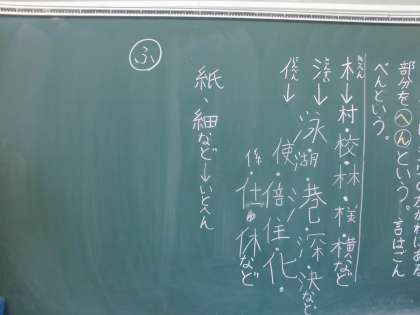 部分をへんという。言はごん
べんという。
木→村・校・林・様・横など
氵→泳・湖・港・深・決など
イ→使・倍・住・化・
係・仕・休など
紙、細など→いとへん
ふ